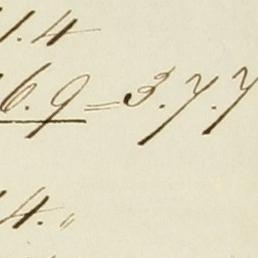 1.4
6.9 = 3.7.7
14. "